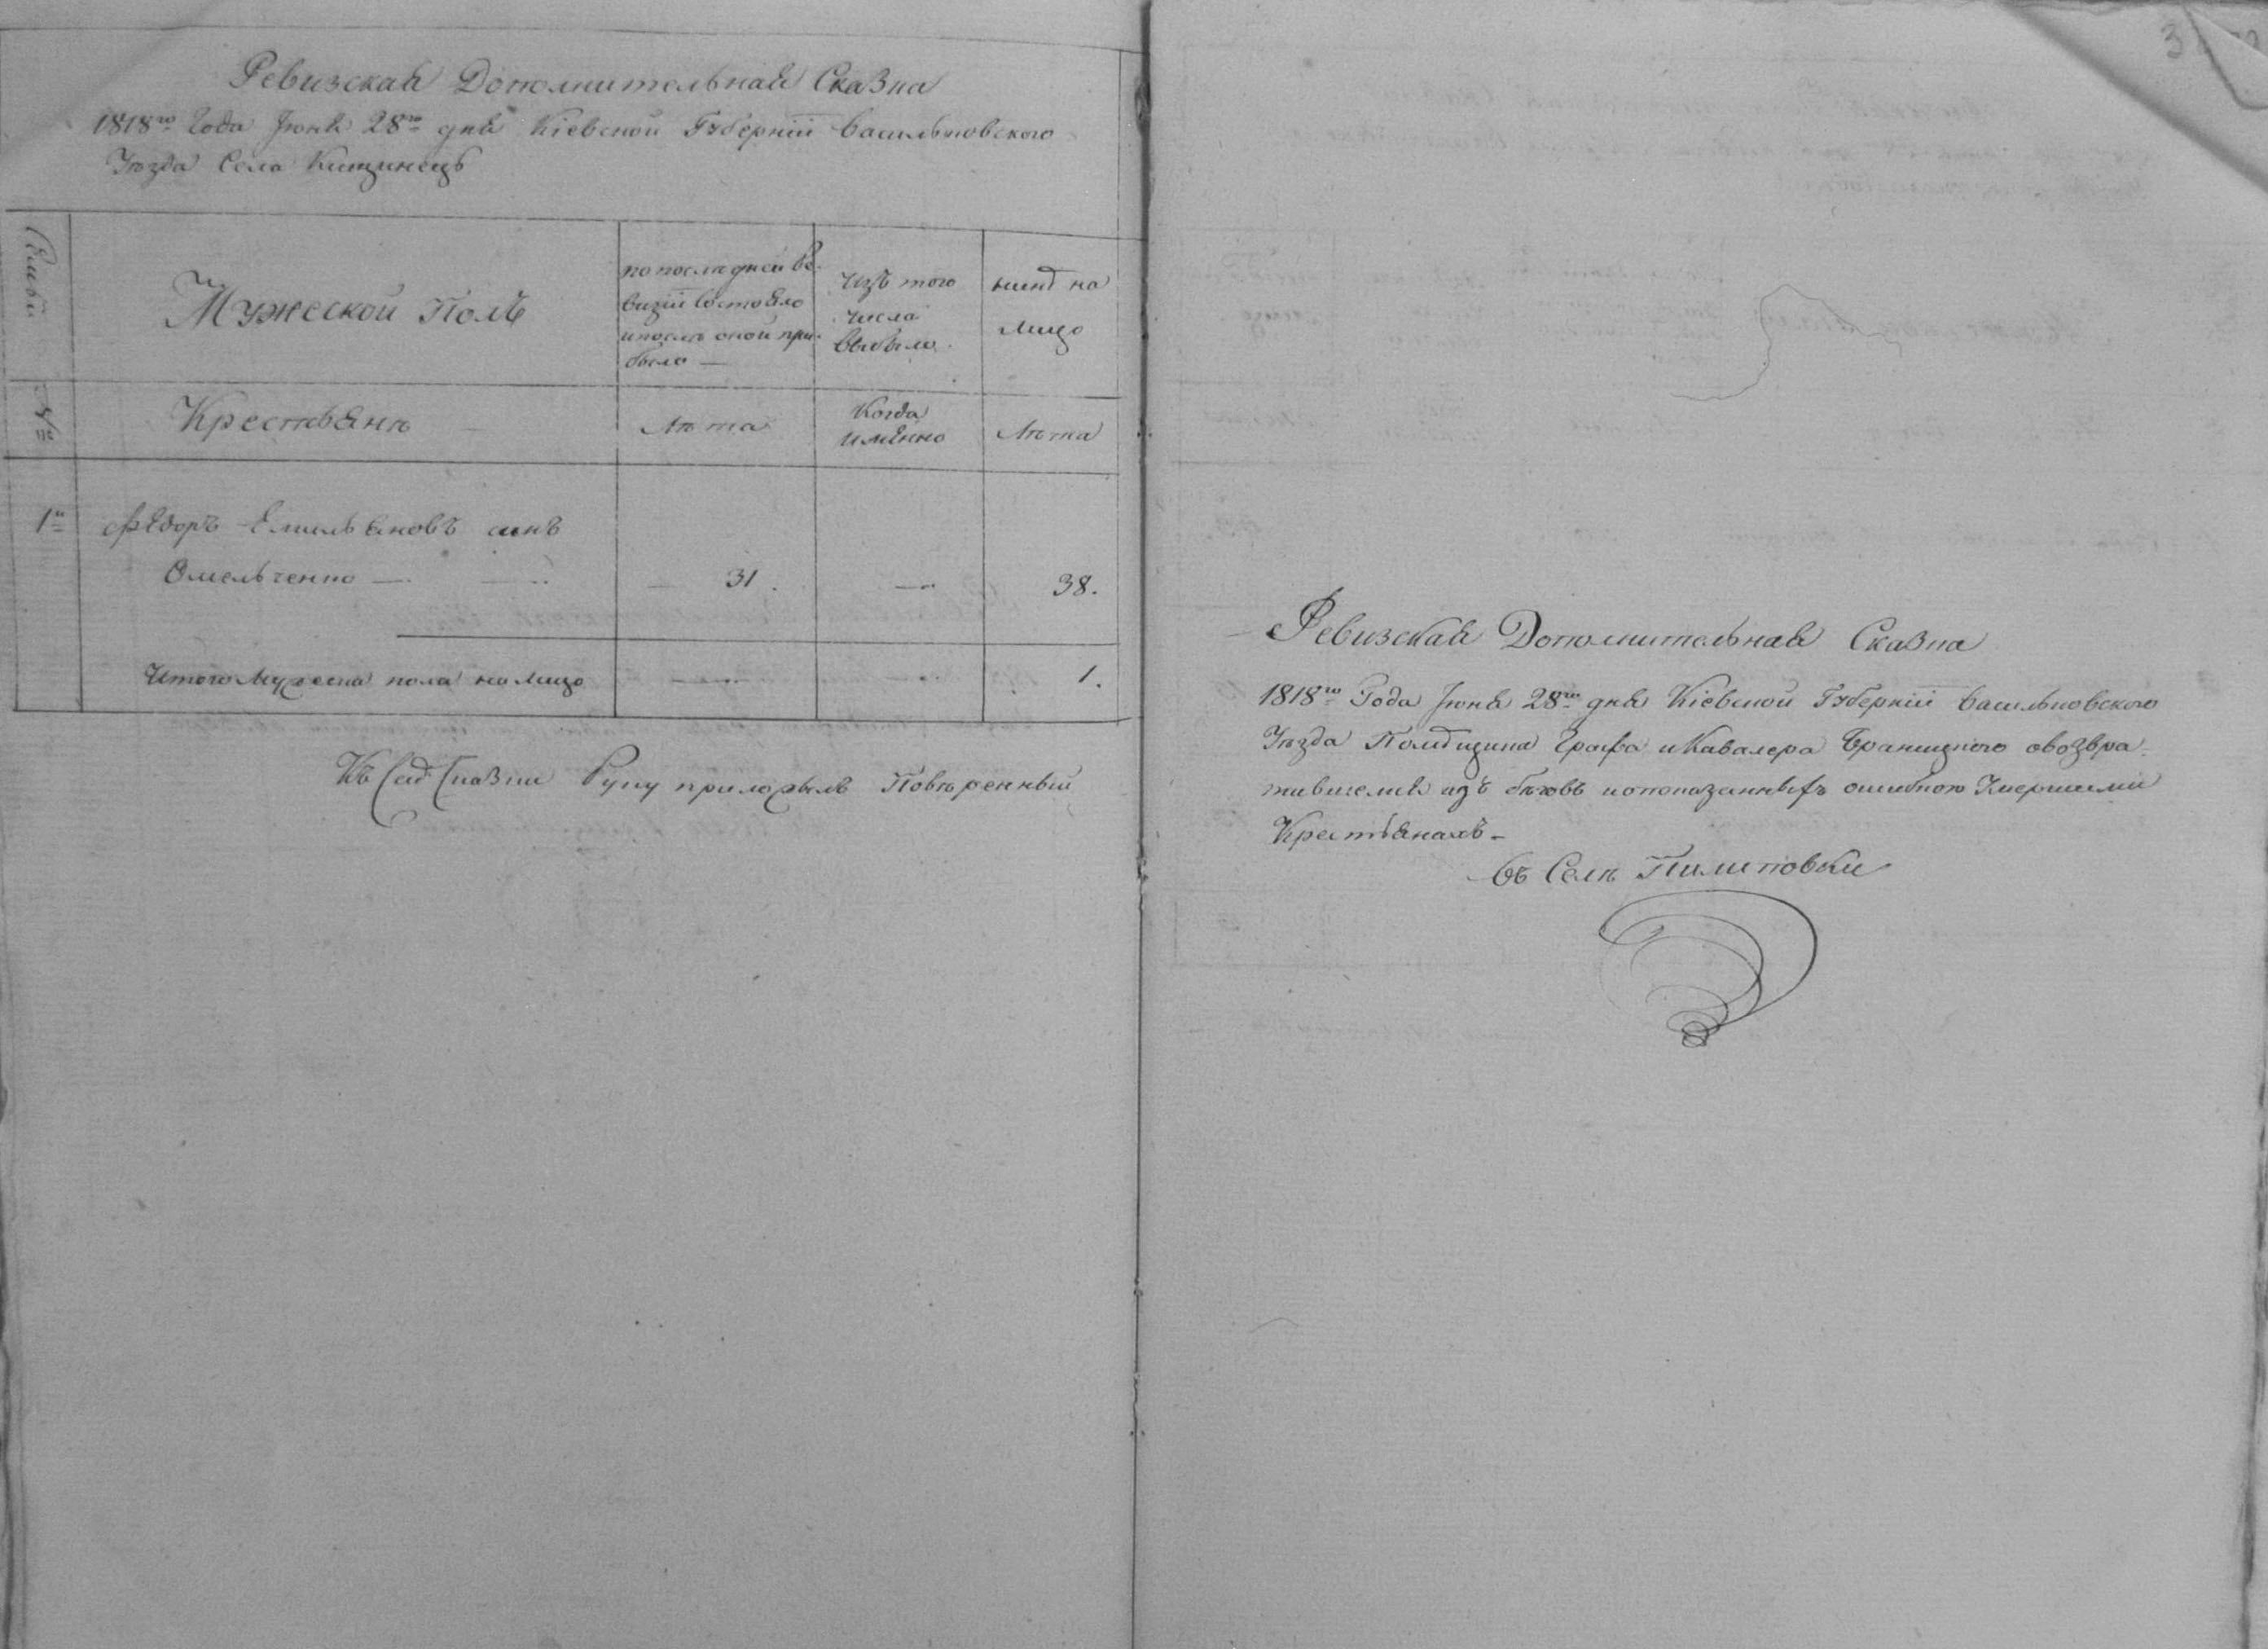 Ревизская Дополнительная Сказка
1818го Года Іюня 28го дня Кіевской Губерніи Васильковского
Уѣзда Села Китщинецъ
Семьи
Мужеской Полъ
по последней Ре-
визіи состояло
и после оной при-
было —
Изъ того
числа
выбыло
нынѣ на
лицо
№
Крестьянъ
Лѣта
Когда
имянно
Лѣта
1й
Ѳедоръ Емельяновъ синъ
Омельченко —
31.
—
38.
Итого Мужеска пола на лицо
1.
Къ Сей Сказки Руку приложилъ Повѣренный
Ревизская Дополнительная Сказка
1818го Года Іюня 28го дня Кіевской Губерніи Васильковского
Уѣзда Помѣщика Графа и Кавалера Браницкого овозвра-
тившемся изъ бѣговъ и опоказанныхъ ошибкою Умершими
Крестьянахъ —
Въ Селѣ Пилиповки